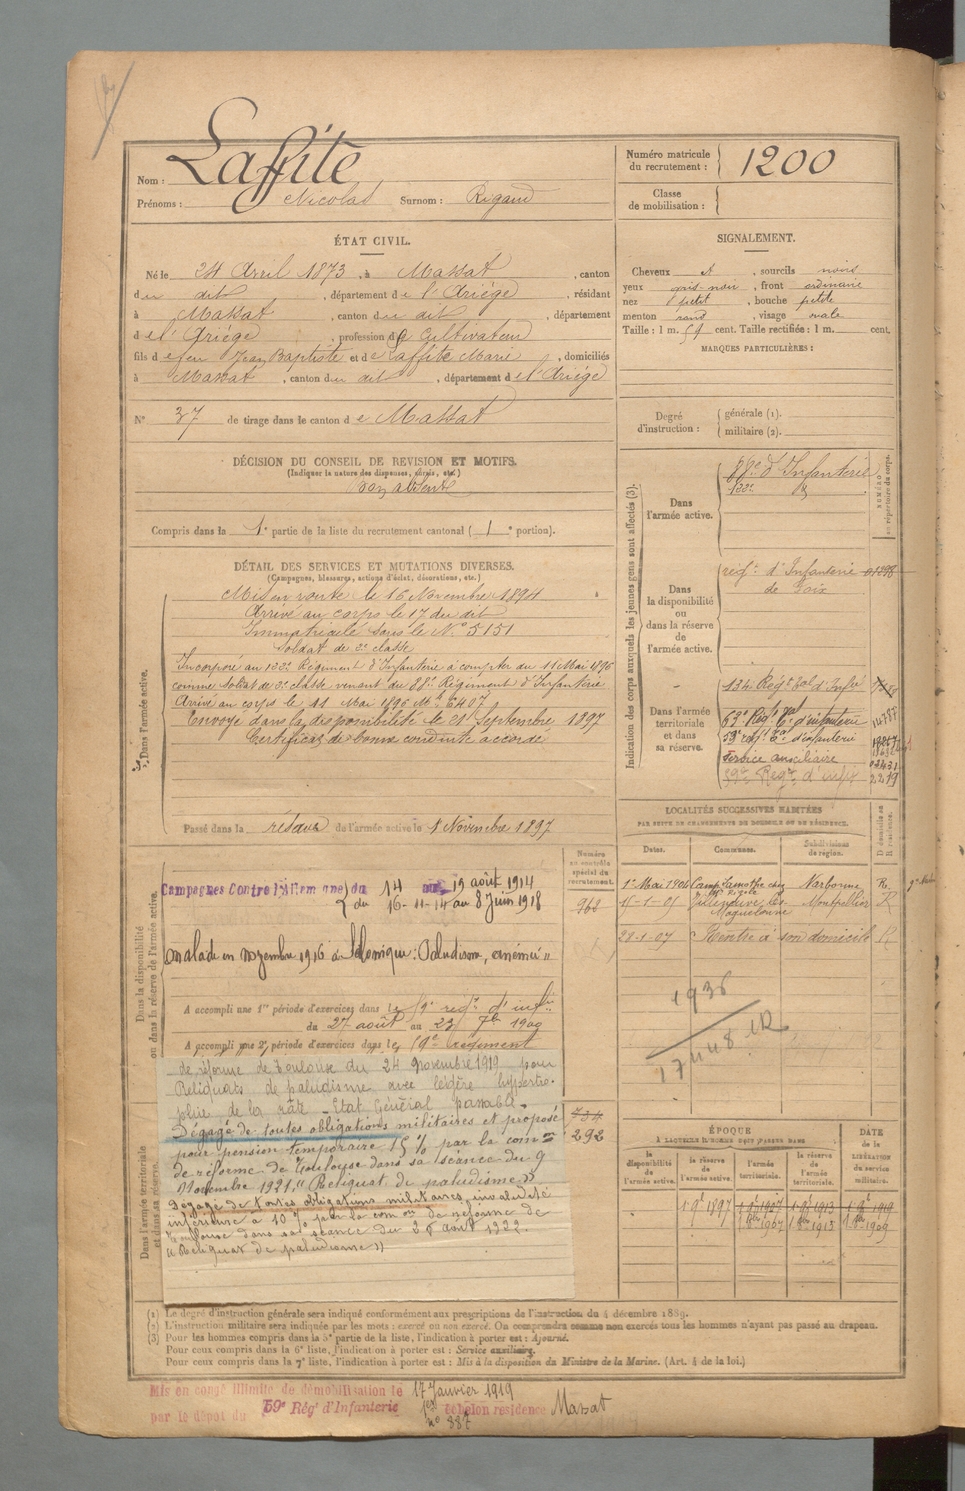 Nom : Laffite
Prénoms : Nicolas Surnom : Rigaud
Numéro matricule du recrutement : 1200
Classe de mobilisation :
ÉTAT CIVIL.
Né le 24 Avril 1873, à Massat, canton
du dit, département de l'Ariège, résidant
à Massat, canton du dit, département
de l'Ariège, profession de Cultivateur
fils de feu Jean Baptiste et de Laffite Marie, domiciliés
à Massat, canton du dit, département de l'Ariège
N° 37 de tirage dans le canton de Massat
SIGNALEMENT.
Cheveux et, sourcils noirs
yeux gris-noir, front ordinaire
nez petit, bouche petite
menton rond, visage ovale
Taille : 1 m. 59 cent. Taille rectifiée : 1 m. cent.
MARQUES PARTICULIÈRES :
Degré d'instruction : générale (1).
militaire (2).
DÉCISION DU CONSEIL DE REVISION ET MOTIFS.
(Indiquer la nature des dispenses, sursis, etc.)
Bon absent
Compris dans la 1e partie de la liste du recrutement cantonal ( 1e portion).
DÉTAIL DES SERVICES ET MUTATIONS DIVERSES.
(Campagnes, blessures, actions d'éclat, décorations, etc.)
Dans l'armée active.
Mis en route le 16 Novembre 1894
Arrivé au corps le 17 du dit
Immatriculé sous le N° 5151
Soldat de 2e classe
Incorporé au 122e Régiment d'Infanterie à compter du 11 Mai 1896
comme soldat de 2e classe venant du 88e Régiment d'Infanterie
Arrivé au corps le 11 Mai 1896 Mle 6407
Envoyé dans la disponibilité le 21 Septembre 1897
Certificat de bonne conduite accordé
Passé dans la réserve de l'armée active le 1 Novembre 1897
Indication des corps auxquels les jeunes gens sont affectés (3).
NUMÉRO au répertoire du corps.
Dans l'armée active.
88e d'Infanterie
122e
Dans la disponibilité ou dans la réserve de l'armée active.
régt d'Infanterie
de Foix
Dans l'armée territoriale et dans sa réserve.
134 Régt d'Infie
63e Régt d'infanterie
53e régt d'infanterie
Service auxiliaire
59e Régt d'infie
LOCALITÉS SUCCESSIVES HABITÉES
PAR SUITE DE CHANGEMENTS DE DOMICILE OU DE RÉSIDENCE.
Dates. Communes. Subdivisions de région. D domicile ou R résidence.
1er Mai 1904 Camp Lamothe chez Narbonne R.
15-1-05 Villeneuve les Maguelonne Montpellier R
28-1-07 Rentré à son domicile R
1936
Dans la disponibilité ou dans la réserve de l'armée active.
Numéro au contrôle spécial du recrutement.
968
Campagnes Contre l'Allemagne du 14 au 19 août 1914
du 16-11-14 au 8 Juin 1918
malade en novembre 1916 à Salonique : Paludisme, anémié"
A accompli une 1re période d'exercices dans le 59e régt d'infie
du 27 août au 23 7bre 1900
A accompli une 2e période d'exercices dans le 59e Régiment
de réforme de Toulouse du 24 novembre 1919 pour
Reliquats de paludisme avec légère hypertro-
phie de la rate - Etat Général passable.
Dégagé de toutes obligations militaires et proposé
pour pension temporaire 15 % par la comon
de réforme de Toulouse dans sa séance du 9
Novembre 1921 "Reliquat de paludisme"
Dégagé de toutes obligations militaires, invalidité
inférieure à 10 % par la comon de réforme de
Toulouse dans sa séance du 26 août 1922.
"Reliquat de paludisme"
Dans l'armée territoriale et dans sa réserve.
734
292
ÉPOQUE
À LAQUELLE L'HOMME DOIT PASSER DANS
DATE de la LIBÉRATION du service militaire.
la disponibilité de l'armée active. la réserve de l'armée active. l'armée territoriale. la réserve de l'armée territoriale.
1 9bre 1897 1 9bre 1907 1 9bre 1913 1 9bre 1919
1 8bre 1907 1 8bre 1913 1 8bre 1909
(1) Le degré d'instruction générale sera indiqué conformément aux prescriptions de l'instruction du 4 décembre 1889.
(2) L'instruction militaire sera indiquée par les mots : exercé ou non exercé. On comprendra comme non exercés tous les hommes n'ayant pas passé au drapeau.
(3) Pour les hommes compris dans la 5e partie de la liste, l'indication à porter est : Ajourné.
Pour ceux compris dans la 6e liste, l'indication à porter est : Service auxiliaire.
Pour ceux compris dans la 7e liste, l'indication à porter est : Mis à la disposition du Ministre de la Marine. (Art. 4 de la loi.)
Mis en congé illimité de démobilisation le 17 Janvier 1919
par le dépôt du 59e Régt d'Infanterie échelon résidence Massat
n° 887